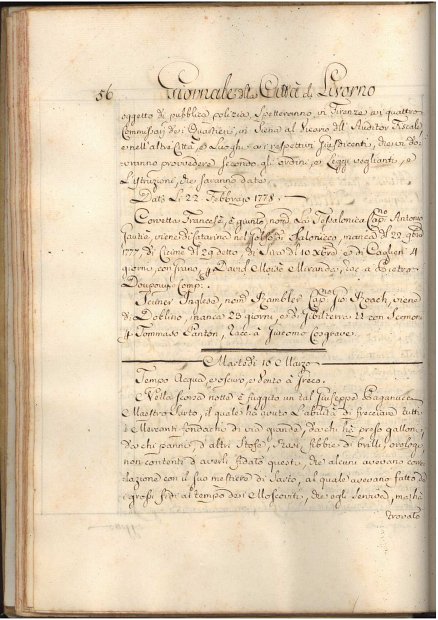 56 Giornale della Città di Livorno
oggetto di pubblica polizia, spetteranno, in Firenze ai quattro
Commissarj dei Quartieri, in Siena al Vicario dell' Auditor Fiscale
e nell' altre Città, e Luoghi ai respettivi Jusdicenti, che in do-
vranno provvedere secondo gli ordini, e Leggi veglianti, e
L'istruzioni, che saranno date.
Dat. li 22 Febbrajo 1778.
Corvetta Francese, è giunto, nomd. La Tessalonica Capno. Antonio
viene di Catarino nel Golfo di Salonicco, manca da 22 9bre
1777, di 29 detto, di 10 Xbre e di Caglieri 4
giorni, con grano p. David Moisè Miranda, rac. a Pietro
Doupouy Comp.
Inglese, nomd. Rambler Capno. Gio: Roach, viene
di Doblino, manca 29 giorni, e di Gibilterra 11 con
p. Tommaso Panton, racc. à Giacomo Cosgrave.
Martedì 10 Marzo
Tempo Acqua, e oscuro, e Vento à Greco.
Nella scorsa notte è fuggito un tal Giuseppe Paganucci
Maestro Sarto, il quale ha avuto L'abilità di frecciare tutti
i Mercanti fondachi di via grande, da chi hà preso gallon,
da chi panni, d'altri Stofe, Rasi, fibbie di brilli, orologi
non contenti d'averli fidato questi, che alcuni avevano con
lazione con il suo mestiero di Sarto, al quale avevano fatto de
grossi fidi al tempo dei Moscoviti, che egli serviva, ma hà
trovato